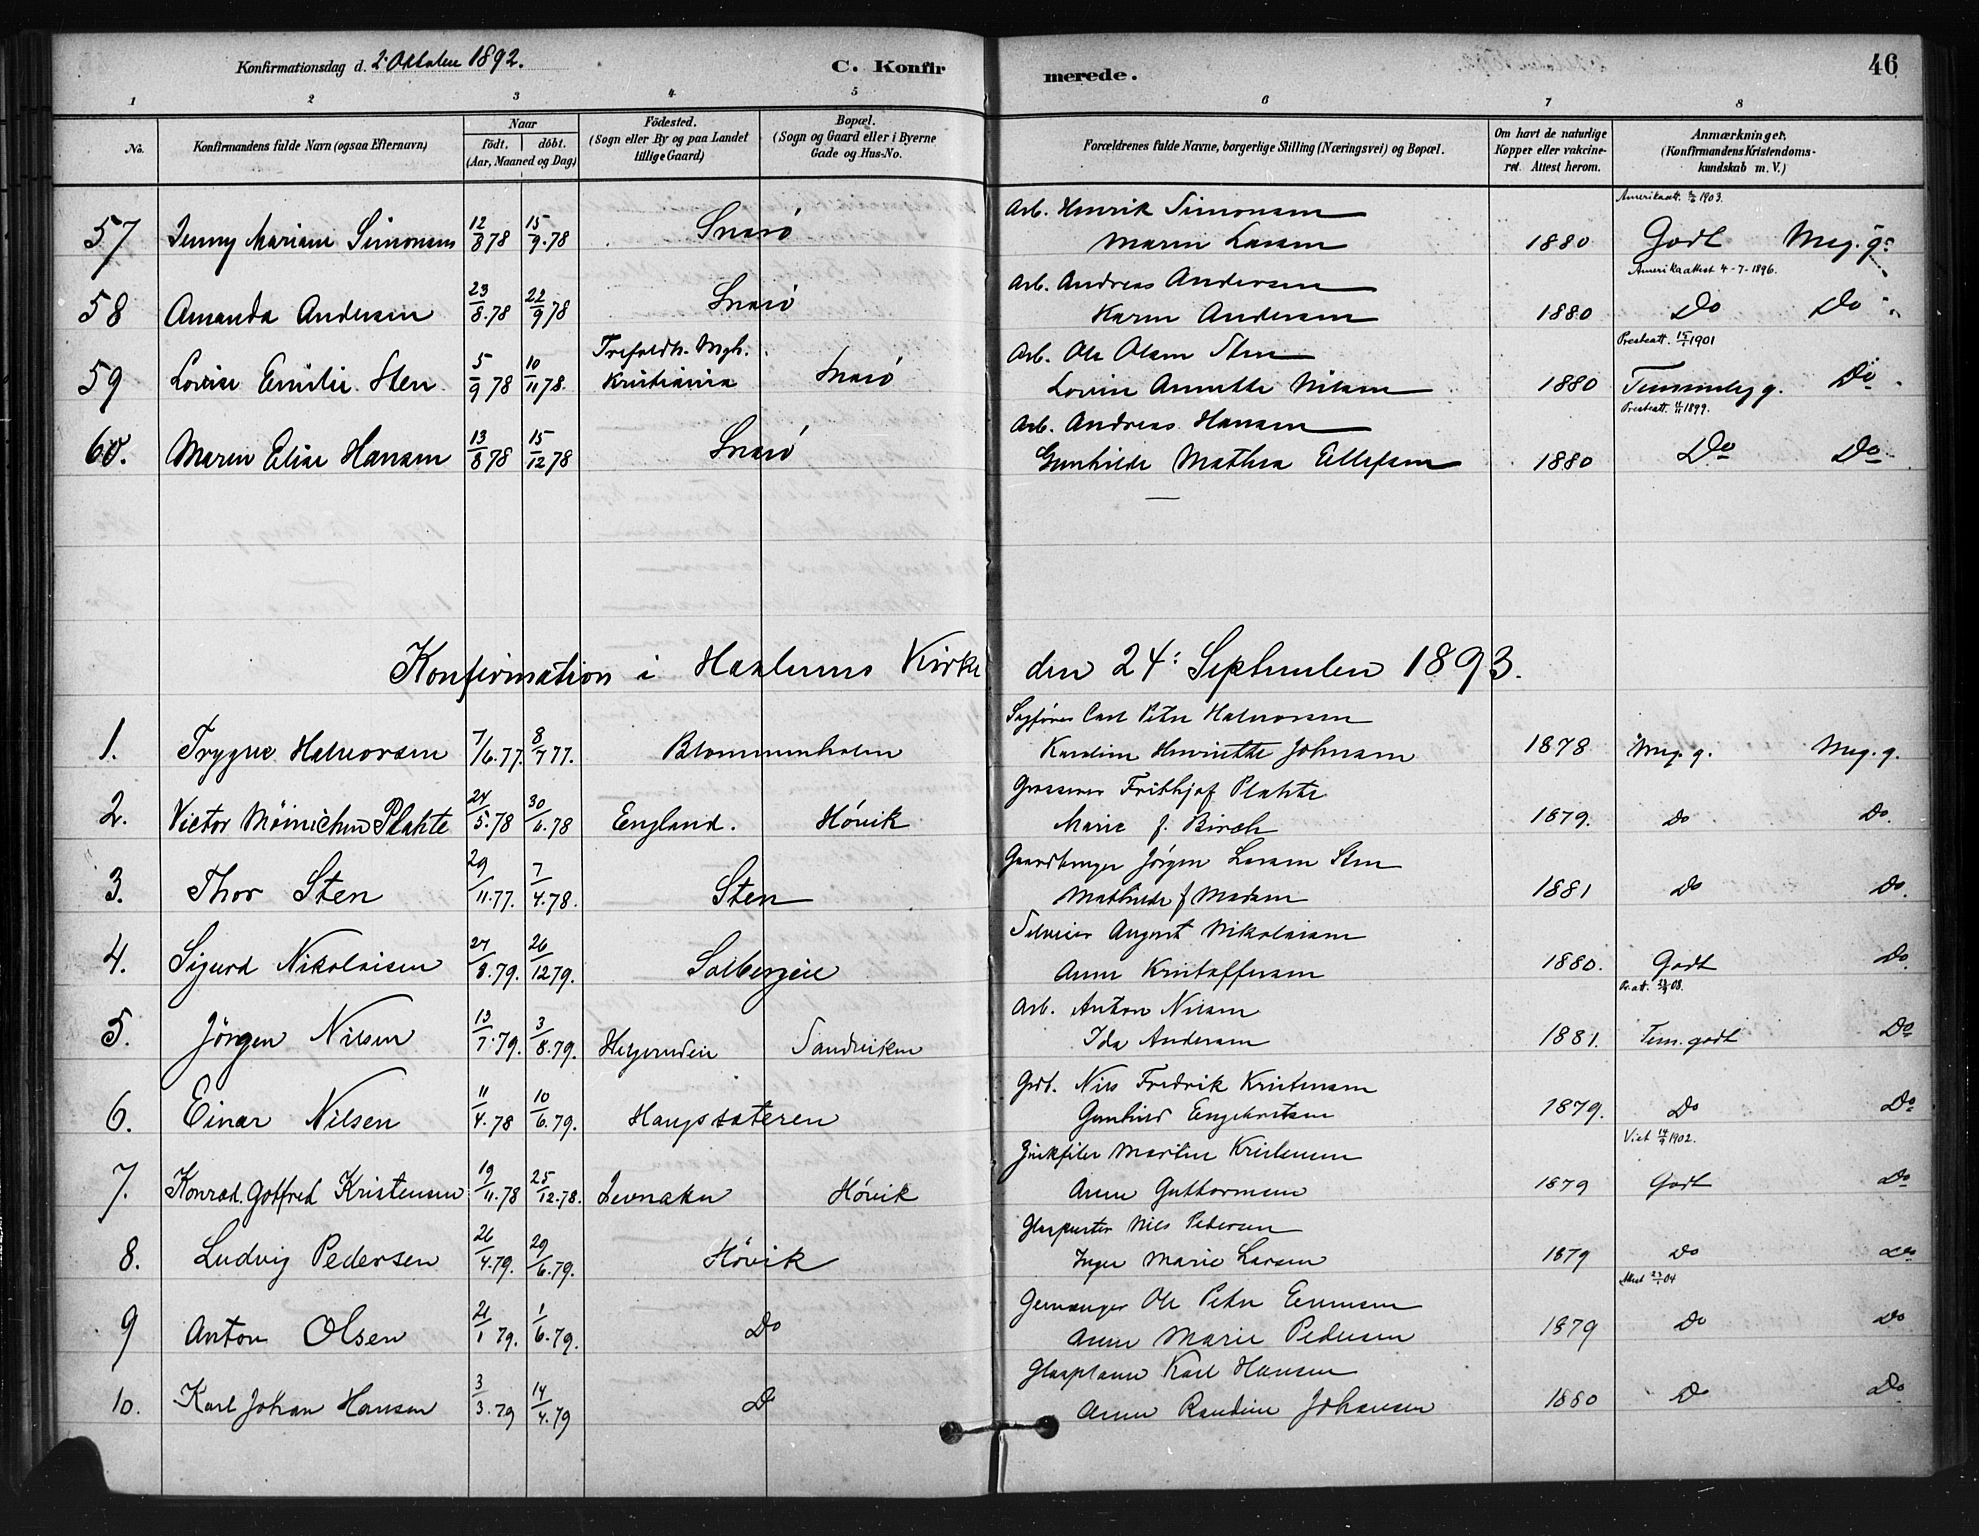 Konfirmationsdag d. 2. Oktober 1892.
C. Konfirmerede.
46
1 2 3 4 5 6 7 8
No.
Konfirmandens fulde Navn (ogsaa Efternavn)
Naar
født. døbt.
(Aar, Maaned og Dag)
Fødested.
(Sogn eller By og paa Landet
tillige Gaard)
Bopæl.
(Sogn og Gaard eller i Byerne
Gade og Hus-No.
Forældrenes fulde Navne, borgerlige Stilling (Næringsvei) og Bopæl.
Om havt de naturlige
Kopper eller vakcine-
ret. Attest herom.
Anmærkninger.
(Konfirmandens Kristendoms-
kundskab m. V.)
Arb. Henrik Simonsen
57 Jenny Mariane Simonsen 12/8 78 15/9.78 Snarö Maren Larsen 1880 Godt Meg. g.
Amerikaatt. 1903.
Arb. Andreas Andersen Amerikaattest 4-7-1896.
58 Amanda Andersen 23/8.78 22/9 78 Snarö Karen Andersen 1880 Do Do
Trefoldh. Mgh. Arb. Ole Olsen Sten Presteatt. 15/1 1901
59 Lovise Emilie Sten 5/9 78 10/11 78. Kristiania Snarö Lovise Annette Nilsen 1880 Temmelig g. Do
Arb. Andreas Hansen Presteatt. 1899.
60. Maren Elise Hansen 13/8 78 15/12 78 Snarö Gunhilde Mathea Ellefsen 1880 Do Do
Konfirmation i Haslums Kirke den 24: September 1893.
Sagfører Carl Peter Halvorsen
1. Trygve Halvorsen 7/6.77. 8/7 77. Blommenholm Karoline Henriette Johnsen 1878 Meg. g. Meg. g.
Grosserer Frithjof Plahte
2. Victor Möinichen Plahte 24/5.78 30/6.78 England. Hövik Marie f. Birch 1879. Do Do.
Gaardbruger Jörgen Larsen Sten
3. Thor Sten 29/11.77. 7/4.78. Sten Mathilde f Madsen 1881 Do Do.
Selveier August Nikolaisen
4. Sigurd Nikolaisen 27/8.79. 26/12 79. Solbergeie Anne Kristoffersen 1880. Godt Do
Arb. Anton Nilsen Pr. att. 08.
5. Jörgen Nilsen 13/7.79. 3/8.79. Helgerudeie Sandviken Ida Andersen 1881. Tem. godt Do
Grdb. Nils Fredrik Kristensen
6. Einar Nilsen 11/4.78 10/6.79. Haugssæteren Gunhild Engebretsen 1879. Do Do
Zinkfiler Martin Kristensen Viet 14/9 1902.
7. Konrad Gotfred Kristensen 19/11.78 25/12.78. Jevnaker Hövik Anne Guttormsen 1879 Godt Do
Glaspuster Nils Pedersen
8. Ludvig Pedersen 26/4.79. 29/6.79. Hövik Inger Marie Larsen 1879 Do Do
Ole Peter Evensen Attest 23/1 04
9 Anton Olsen 21/1 79. 1/6.79. Do Anne Marie Pedersen 1879 Do Do
Karl Hansen
10. Karl Johan Hansen 3/3.79 14/4.79 Do Anne Randine Johansen 1880 Do Do